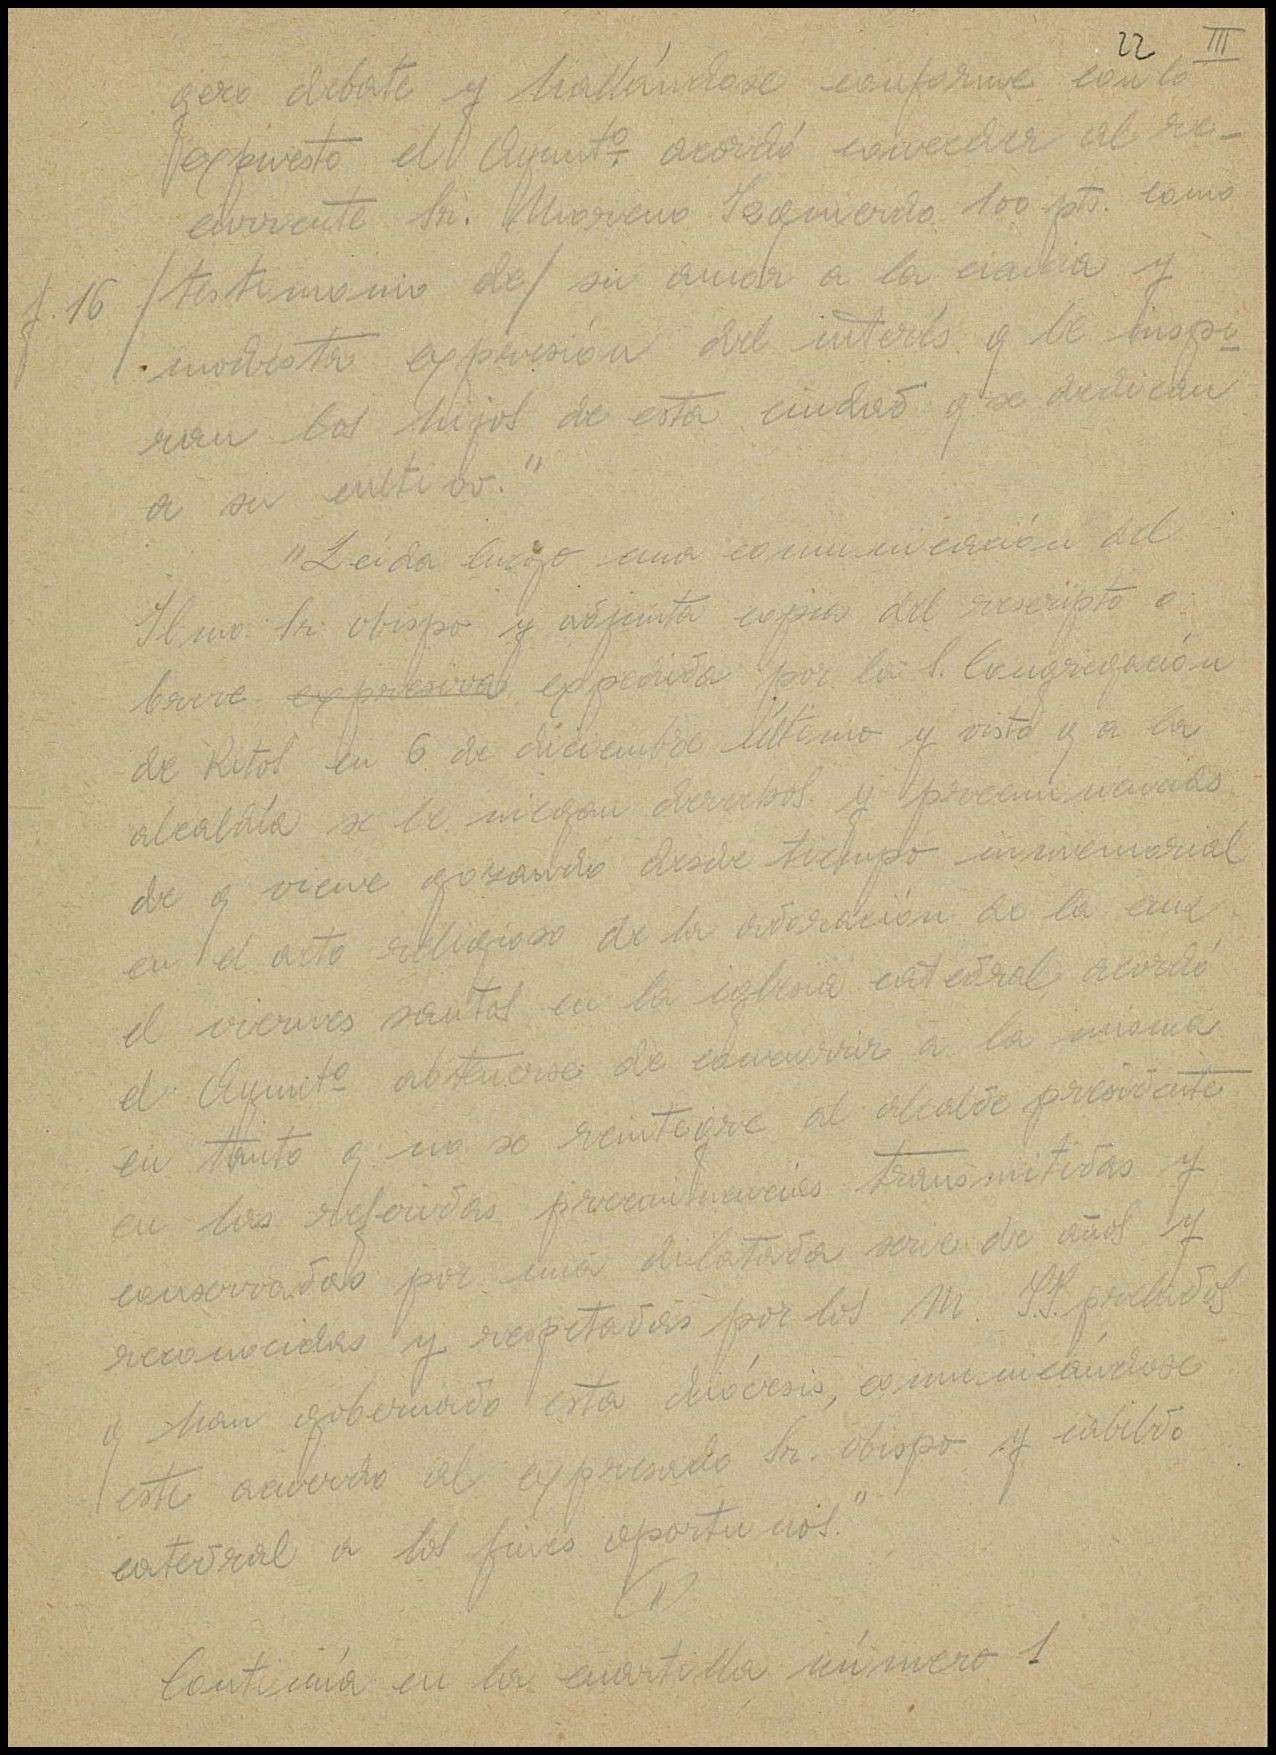 22 III
gero debate y hallándose conforme con lo
expuesto el Ayuntº. acordó conceder al re-
currente Sr. Moreno Izquierdo 100 pts. como
f. 16 /testimonio de/ su amor a la ciencia y
modesta expresión del interés q le inspi-
ran los hijos de esta ciudad q se dedican
a su cultivo."
"Leida luego una comunicación del
Ilmo. Sr. obispo y adjunta copia del rescripto o
breve expresiva expedida por la S. Congregación
de Ritos en 6 de diciembre último y visto q a la
alcaldía se le niegan derechos y preeminencias
de q viene gozando desde tiempo inmemorial
en el acto religioso de la adoración de la cruz
el viernes santos en la iglesia catedral, acordó
el Ayuntº abstenerse de concurrir a la misma
en tanto q no se reintegre al alcalde presidente
en las referidas preeminencias transmitidas y
conservadas por una dilatada serie de años y
reconocidas y respetadas por los M. SS. prelados
q han gobernado esta diócesis, comunicándose
este acuerdo al expresado Sr. obispo y cabildo
catedral a los fines oportunos."
Continúa en la cuartilla número 1